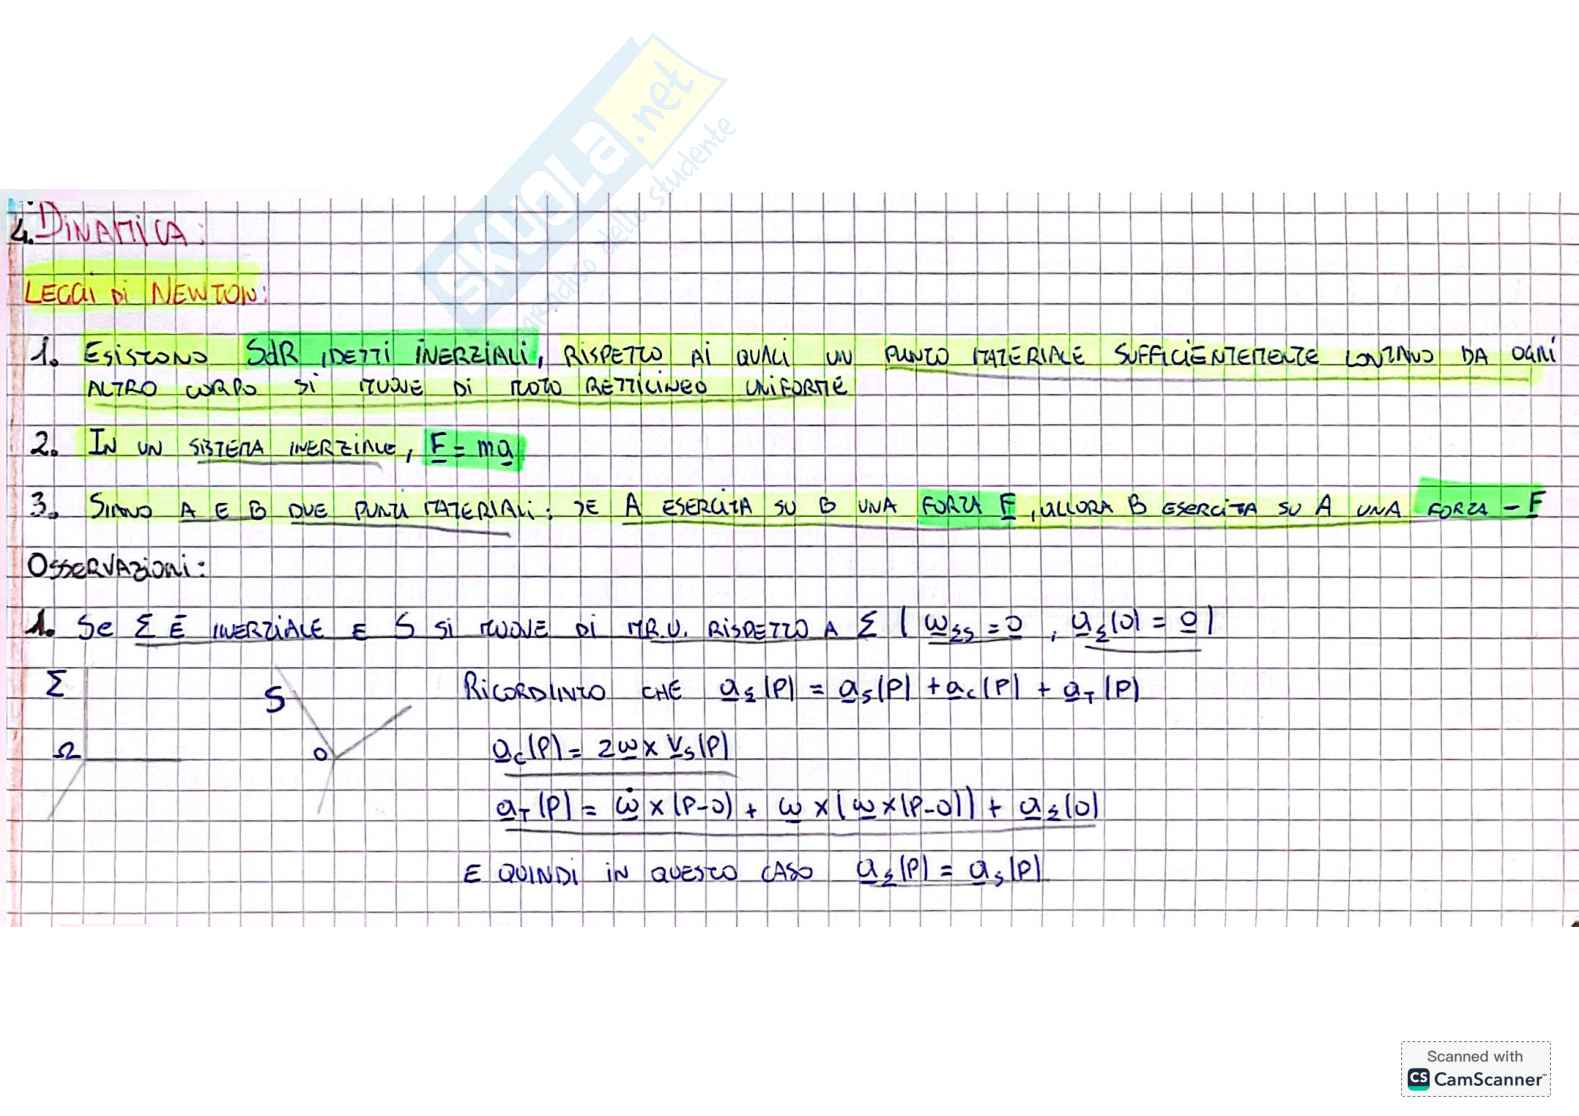 SKUOLA.net
paradiso dello studente
4. DINAMICA:
LEGGI DI NEWTON:
1. ESISTONO SdR, DETTI INERZIALI, RISPETTO AI QUALI UN PUNTO MATERIALE SUFFICIENTEMENTE LONTANO DA OGNI
ALTRO CORPO SI MUOVE DI MOTO RETTILINEO UNIFORME
2. IN UN SISTEMA INERZIALE, F = ma
3. SIANO A E B DUE PUNTI MATERIALI; SE A ESERCITA SU B UNA FORZA F, ALLORA B ESERCITA SU A UNA FORZA -F
OSSERVAZIONI:
1. SE Σ È INERZIALE E S SI MUOVE DI M.R.U. RISPETTO A Σ ( ω_ΣS = 0 , a_Σ(O) = 0 )
Σ S RICORDIAMO CHE a_Σ(P) = a_S(P) + a_C(P) + a_T(P)
Ω O a_C(P) = 2ω × V_S(P)
a_T(P) = ω̇ × (P-O) + ω × (ω × (P-O)) + a_Σ(O)
E QUINDI IN QUESTO CASO a_Σ(P) = a_S(P)
Scanned with
CS CamScanner